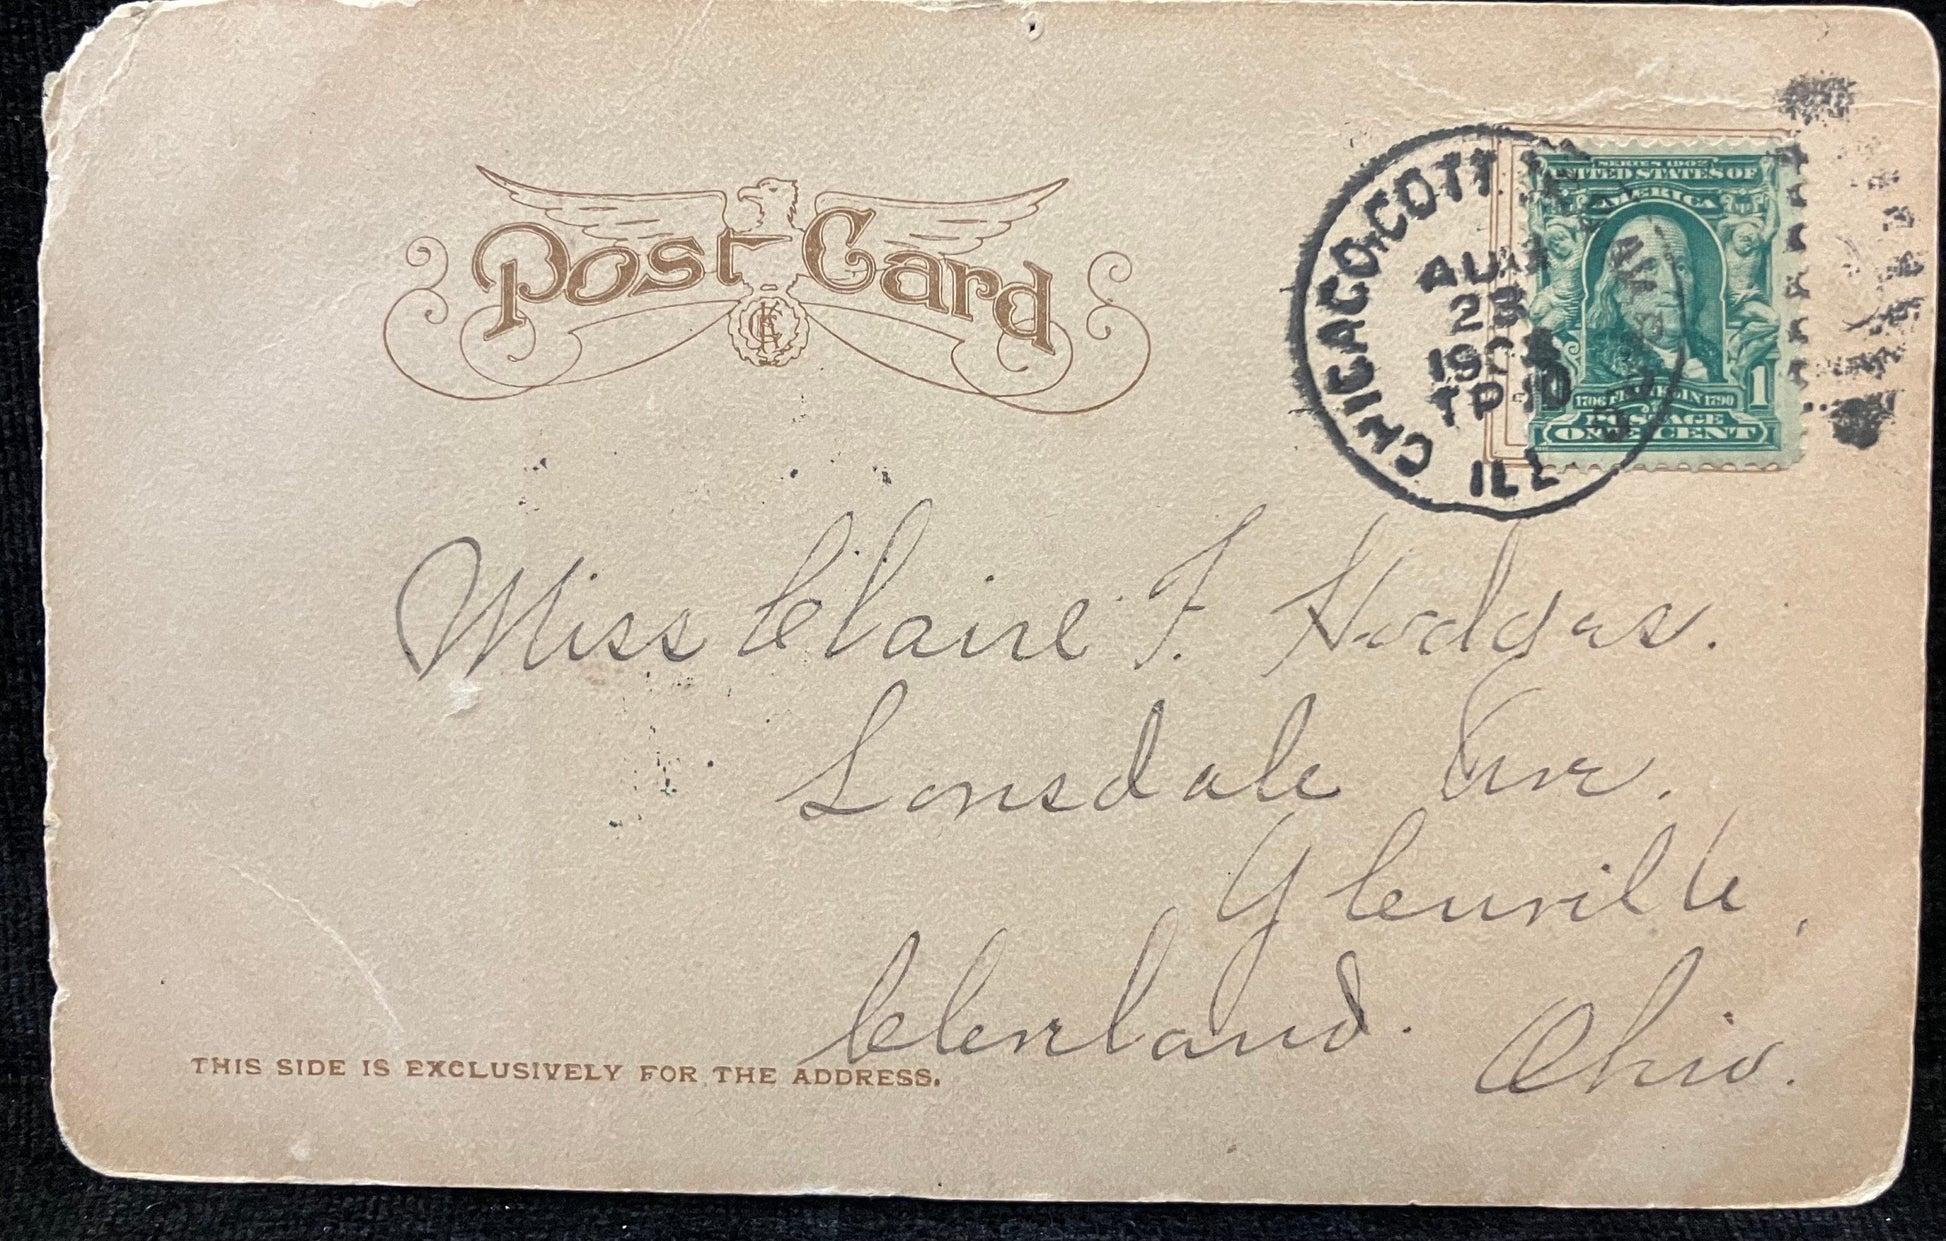 Post Card
CHICAGO & COTT
ILL
AUG
28
TP
SERIES 1902
UNITED STATES OF
AMERICA
1706 FRANKLIN 1790
1
POSTAGE
ONE CENT
Miss Claire F. Hodges.
Lonsdale Ave.
Glenville,
Cleveland. Ohio.
THIS SIDE IS EXCLUSIVELY FOR THE ADDRESS.